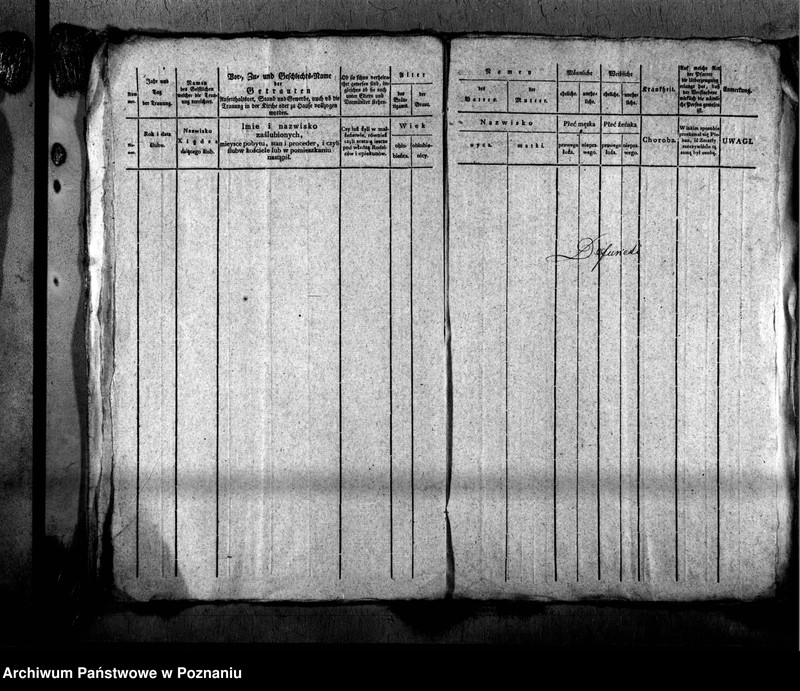 Jahr und
Tag
der Trauung.
Namen
des Geistlichen
welcher die Trau-
ung verrichtet.
Vor-, Zu- und Geschlechts-Name
der
Getrauten
Aufenthaltsort, Stand und Gewerbe, auch ob die
Trauung in der Kirche oder zu Hause vollzogen
worden.
Ob sie schon verheira-
thet gewesen sind, im-
gleichen ob sie noch
unter Eltern und
Vormünder stehen.
Alter
des
Bräu-
tigams.
der
Braut.
Rok i data
ślubu.
Nazwisko
Xiędza
daiącego ślub.
Imie i nazwisko
zaślubionych,
mieysce pobytu, stan i proceder, i czyli
ślub w kościele lub w pomieszkaniu
nastąpił.
Czy iuż byli w mał-
żeństwie, również
czyli zostaią ieszcze
pod władzą Rodzi-
ców i opiekunów.
Wiek
oblu-
bieńca.
oblubie-
nicy.
Namen
des
Vaters.
der
Mutter.
Männliche
Weibliche
eheliche.
unehe-
liche.
eheliche.
unehe-
liche.
Krankheit.
Auf welche Art
der Pfarrer
die Ueberzeugung
erlangt hat, daß
der Verstorbene
wirklich die nämli-
che Person gewesen
ist.
Anmerkung.
Nazwisko
oyca.
matki.
Płeć męska
Płeć żeńska
prawego
łoża.
niepra-
wego.
prawego
łoża.
niepra-
wego.
Choroba.
W iakim sposobie
przekonał się Ple-
ban, iż Zmarły
rzeczywiście tą
samą był osobą.
UWAGI.
Archiwum Państwowe w Poznaniu